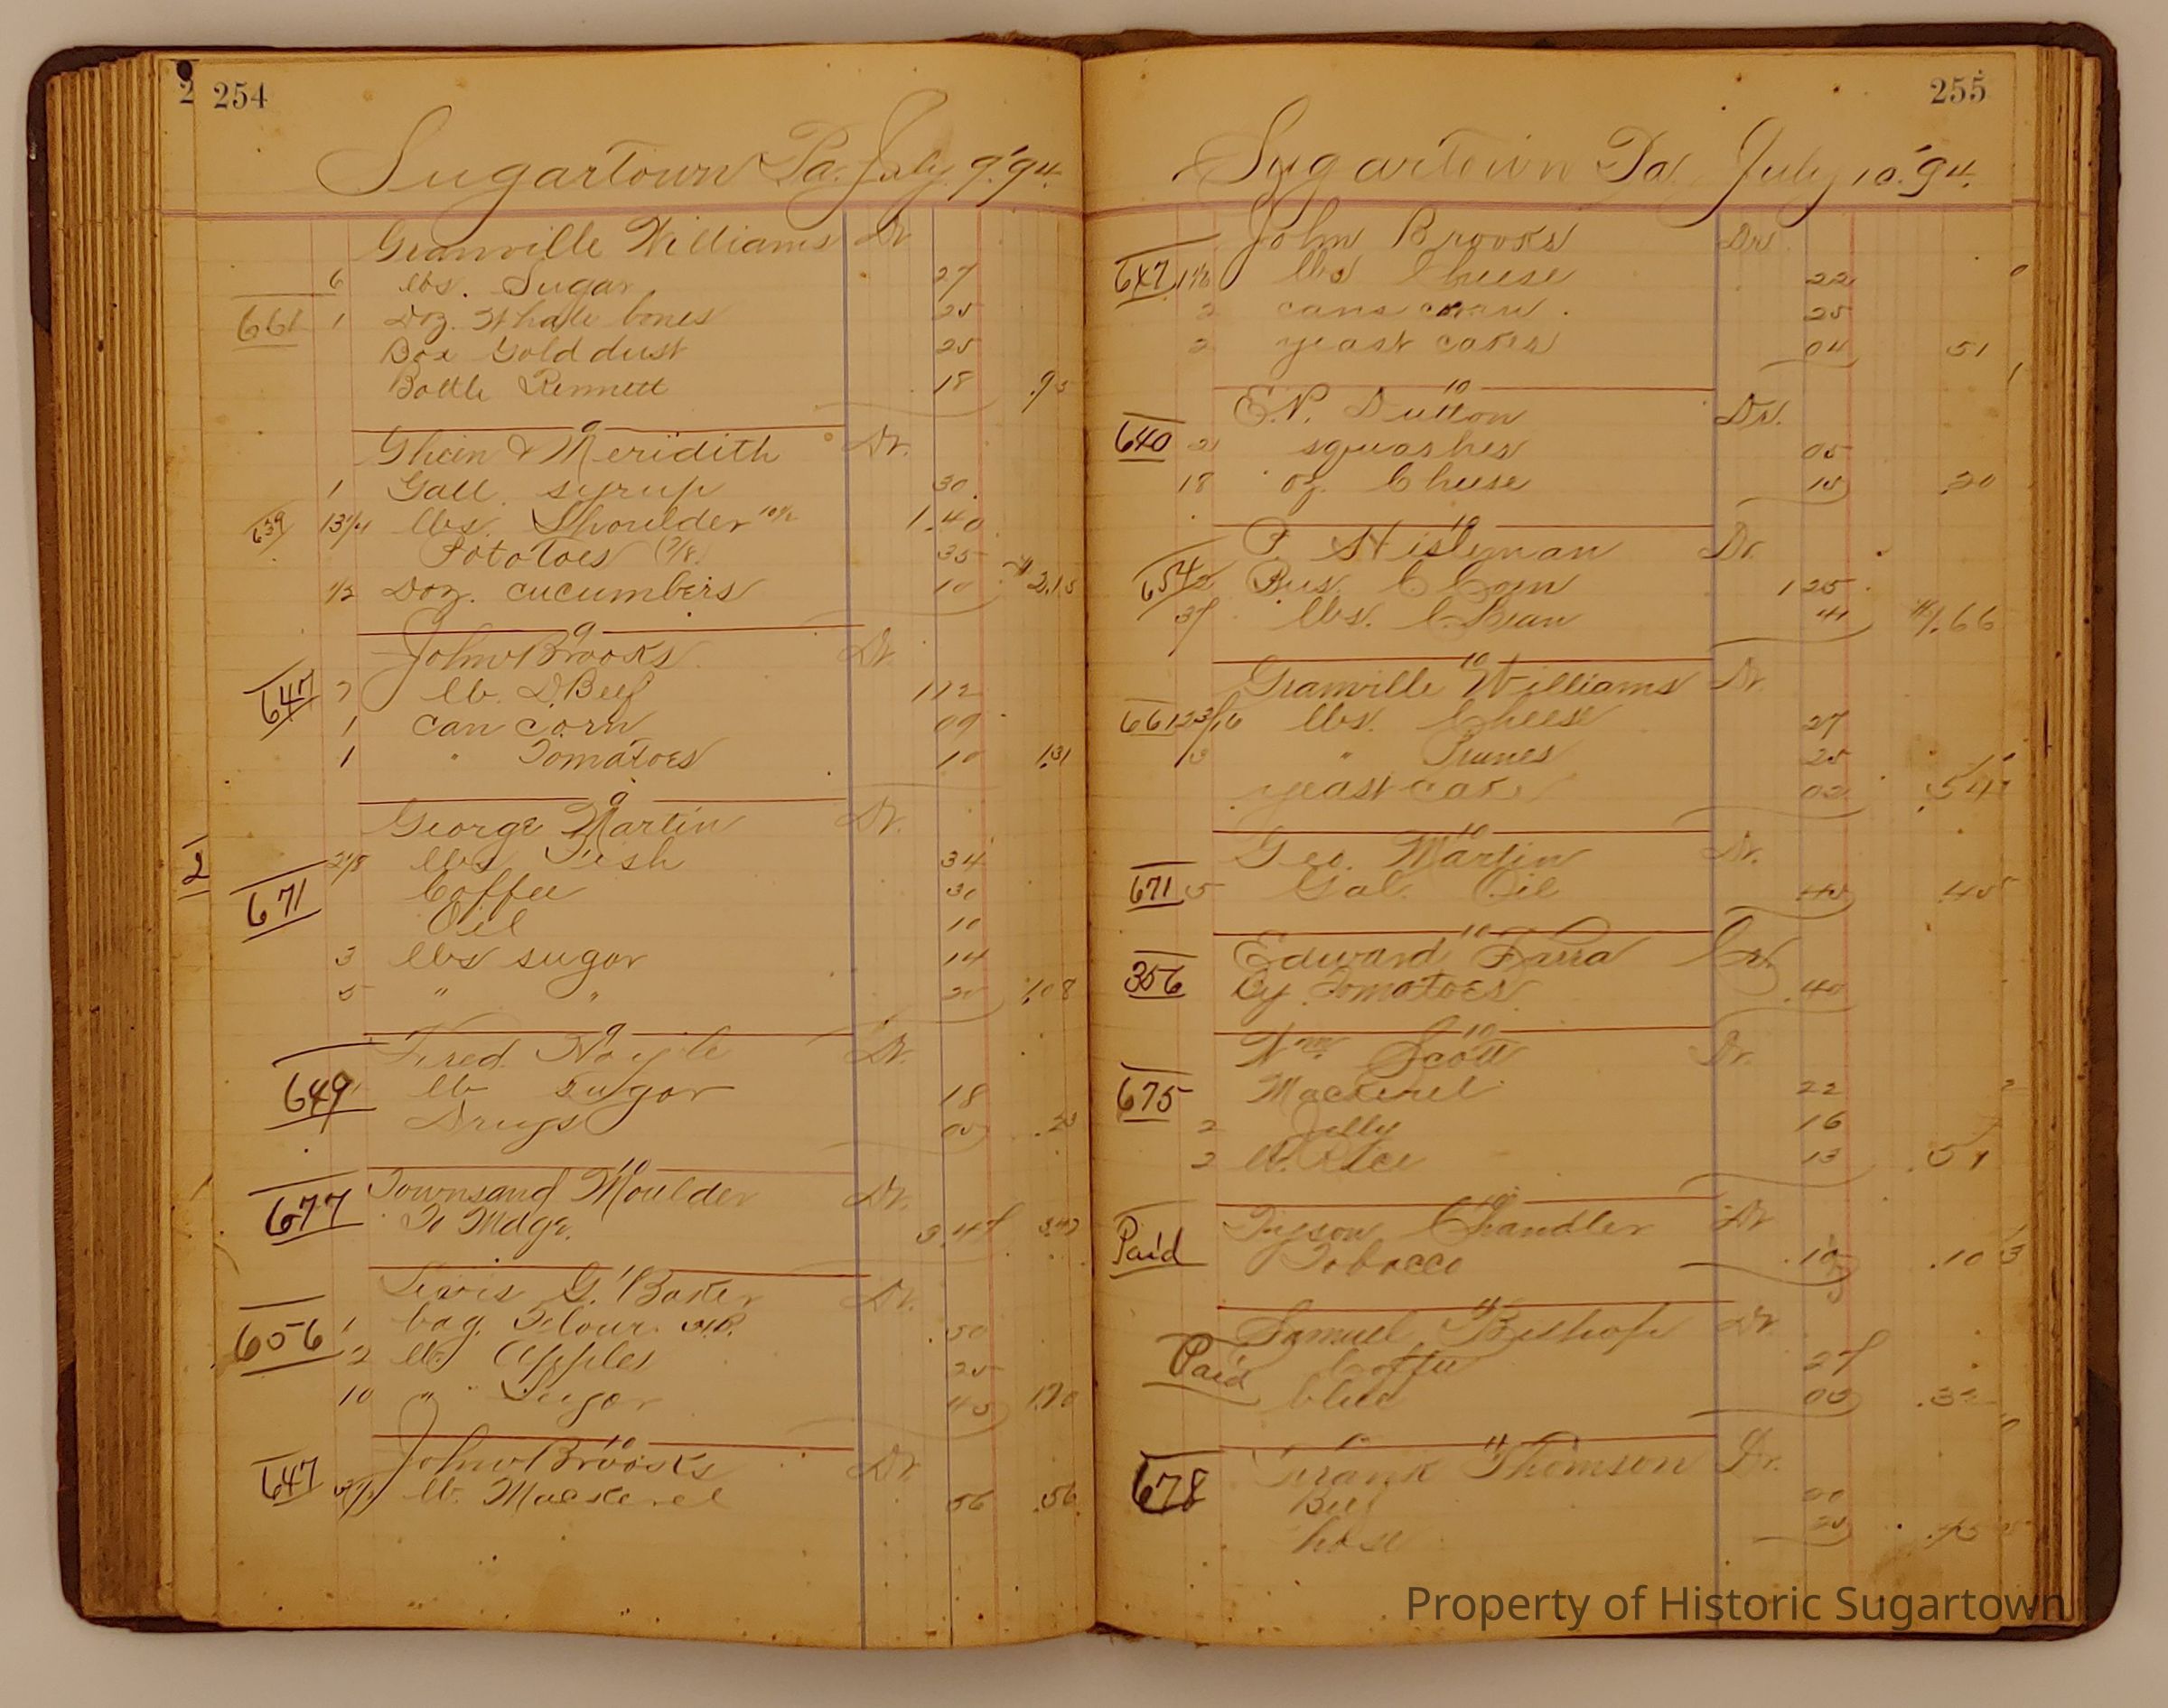 2 254
Sugartown Pa. July 9. '94.
Granville Williams Dr
6 lbs. Sugar 27
661 1 Doz. Whale bones 25
Box Gold dust 25
Bottle Rennett 18 .95
9
& Meridith Dr.
1 Gall. syrup 30.
639 13 1/4 lbs. Shoulder 10 1/2 1.40
Potatoes 35
1/2 Doz. cucumbers 10 $2.15
9
John Brooks Dr.
647 7 lb. D. Beef 112
1 can corn 09
1 " Tomatoes 10 1.31
9
George Martin Dr.
2
2 1/8 lbs Fish 34
671 Coffee 30
Oil 10
3 lbs sugar 14
5 " " 20 1.08
9
Fred Dr.
649 lb sugar 18
Drugs 05 .23
10
677 Townsand Moulder Dr.
To Mdge. 3.47 3.47
Lewis G. Baker Dr.
656 1 bag Flour 50
2 lb. Apples 25
10 " Sugar 45 1.20
10
John Brooks Dr
647 3 1/2 lb. Mackerel 56 .56
255
Sugartown Pa July 10. '94.
John Brooks Dr.
647 lbs Cheese 22
2 cans corn 25
2 yeast cakes 04 51
10
E.P. Dutton Dr.
640 2 squashes 05
18 oz. Cheese 15 .20
10
P. Dr.
654 2 Bus. C Corn 1 25
37 lbs. C. Bran 41 $1.66
10
Granville Williams Dr
661 2 3/16 lbs. Cheese 27
3 " Prunes 25
yeast cake 02 .54
10
Geo. Martin Dr.
671 5 Gal. Oil 45 .45
10
Edward Farra Cr.
356 By Tomatoes .40
10
Wm Scott Dr.
675 Mackerel 22
2 Jelly 16
2 lb. Rice 13 .51
10
Tyson Chandler Dr
Paid Tobacco .10 .10
11
Samuel Bishop Dr
Paid Coffee 27
blue 05 .32
11
Frank Thomson Dr.
678 Beef
hose
Property of Historic Sugartown